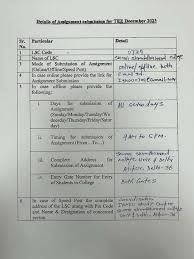 Details of Assignment submission for TEE December 2023
Sr. No.
Particular
Detail
1
LSC Code
0729
2
Name of LSC
college
3
Mode of Submission of Assignment (Online/Offline/Speed Post)
online, offline, both
4
In case online please provide the link for Assignment Submission
5
In case offline please provide the following:
i. Days for submission of Assignment (Sunday/Monday/Tuesday/Wednesday/Thursday/Friday/Saturday)
All seven days
ii. Timing for submission of Assignment (From....To...)
9AM to 5PM.
iii. Complete Address for Submission of Assignment
college
Delhi-36
iv. Entry Gate Number for Entry of Students in College
Both Gates
6
In case of Speed Post the complete address of the LSC along with Pin Code and Name & Designation of concerned person
Coordinator
college
Delhi-36